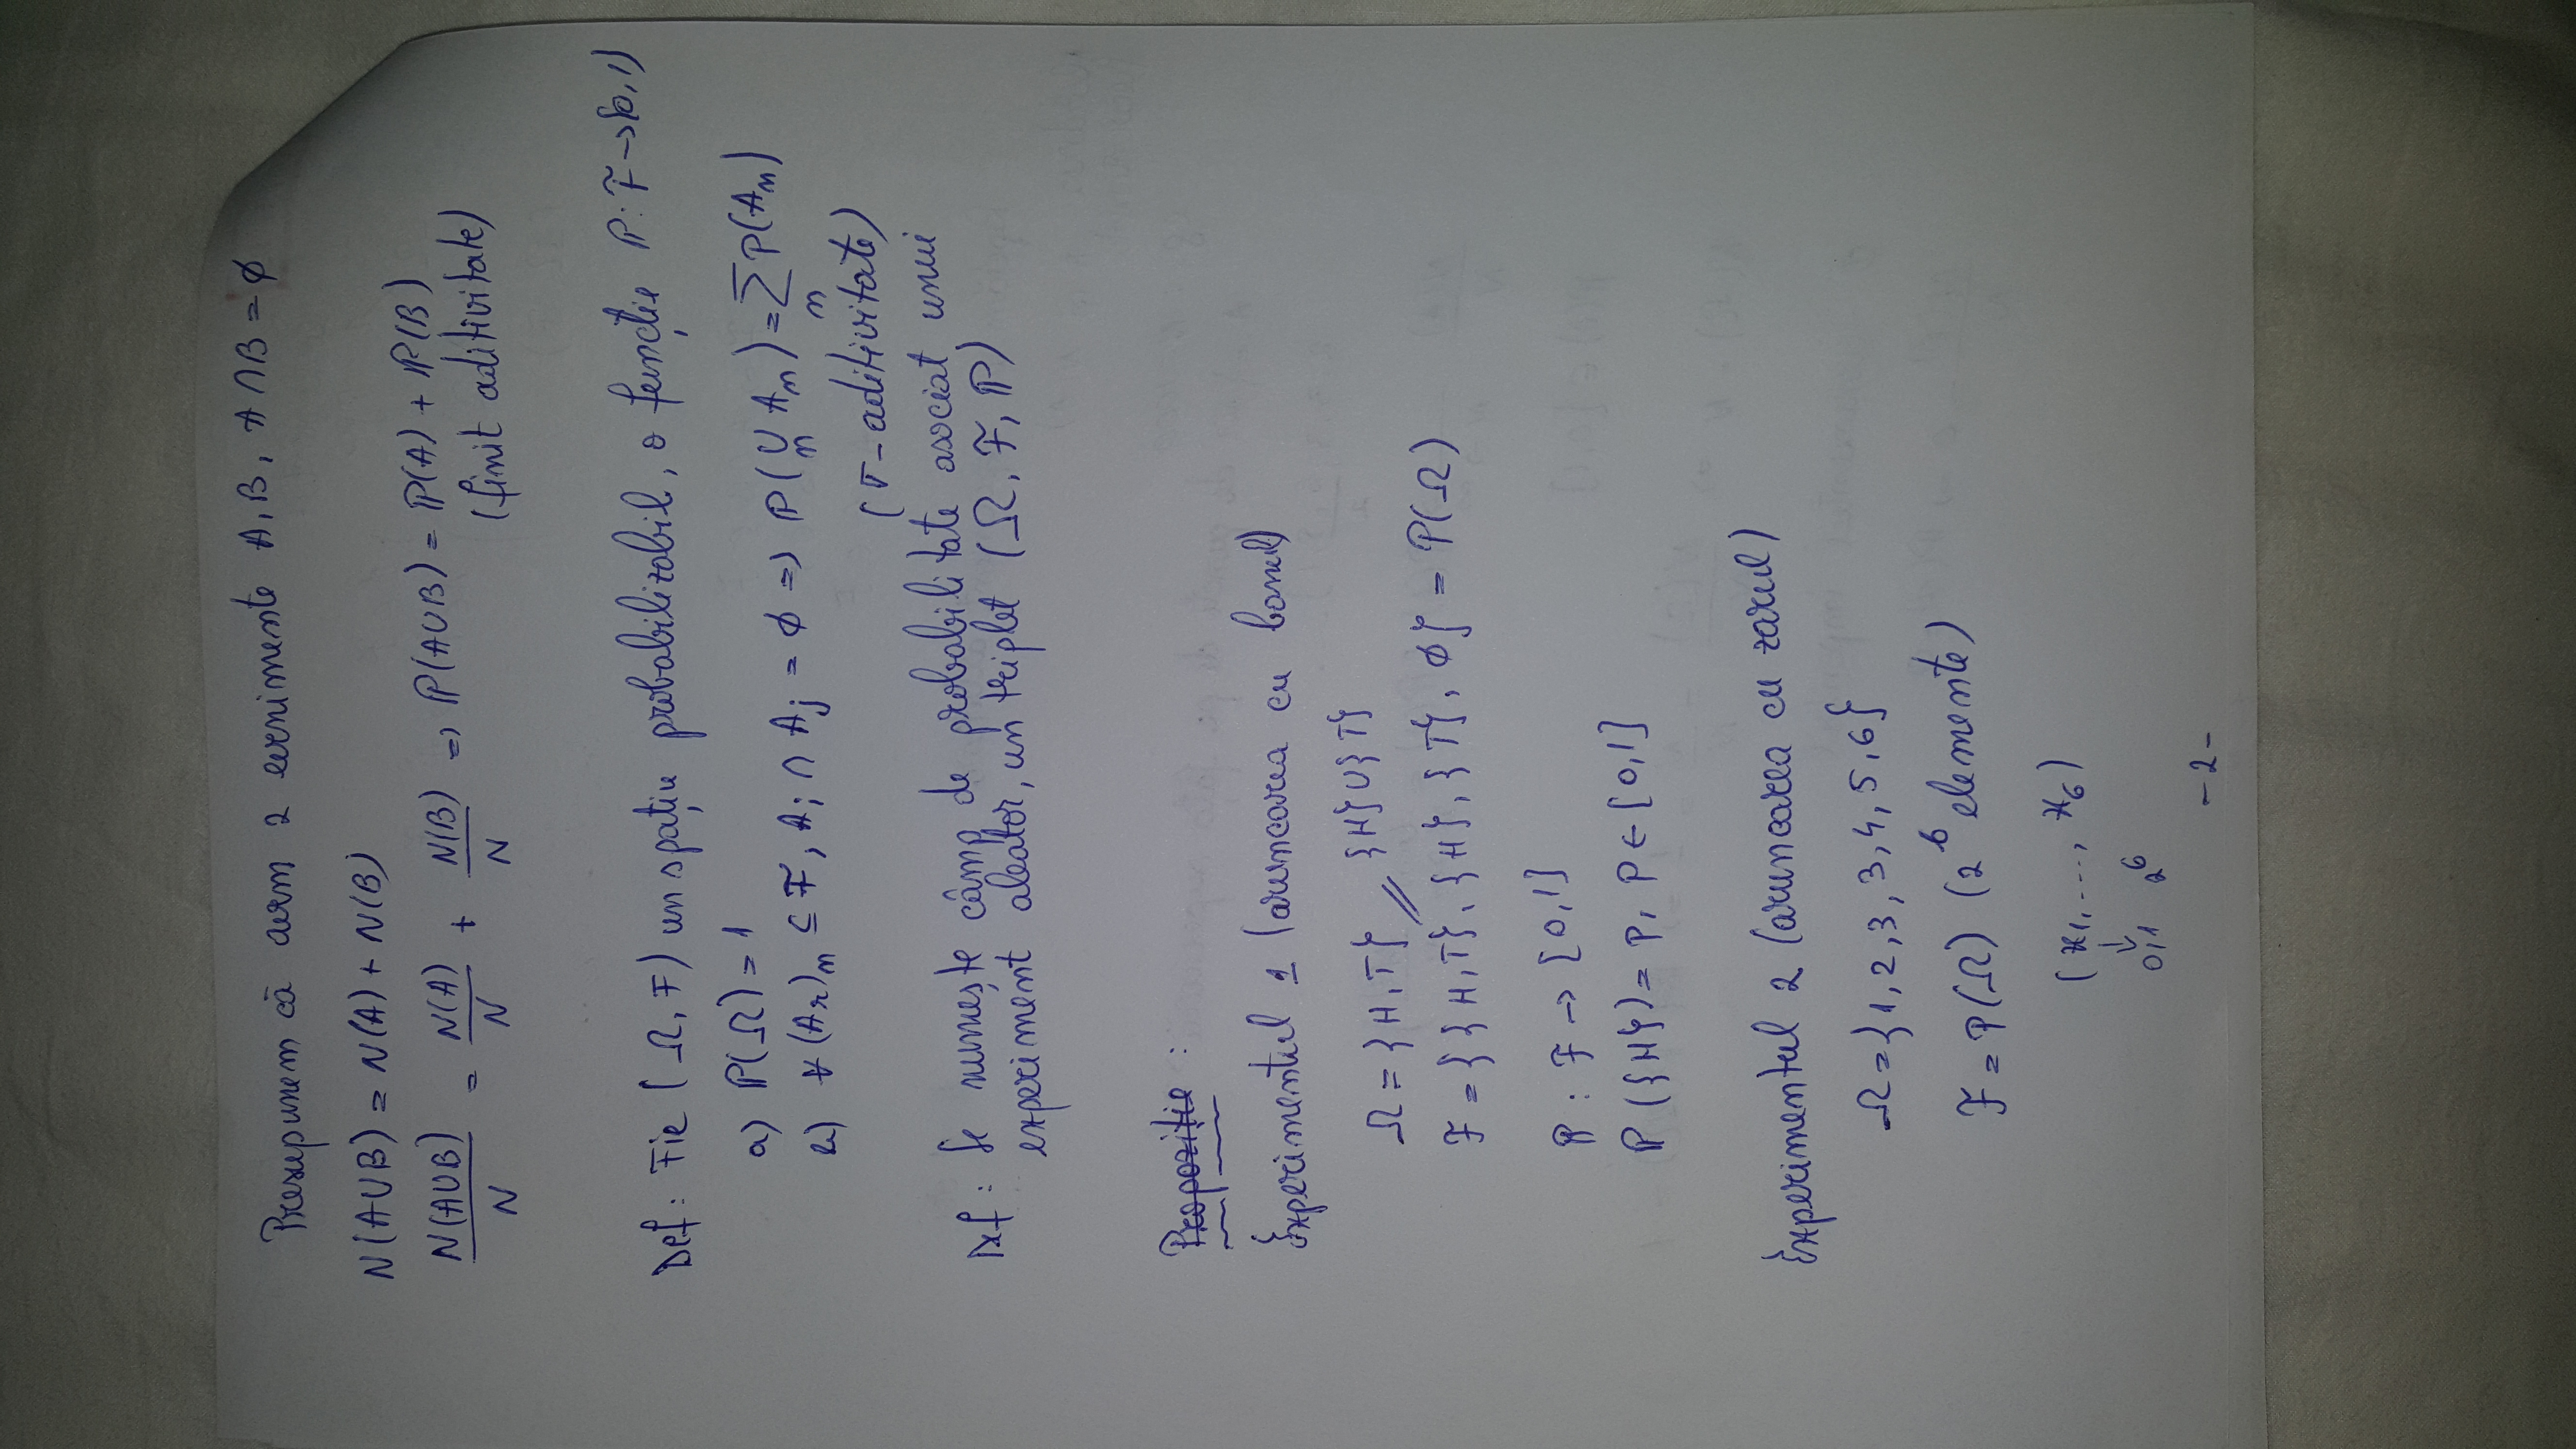 Presupunem că avem 2 evenimente A, B, A ∩ B = ∅
N(A∪B) = N(A) + N(B)
N(A∪B)/N = N(A)/N + N(B)/N => ℙ(A∪B) = ℙ(A) + ℙ(B)
(finit aditivitate)
Def: Fie (Ω, F) un spațiu probabilizabil, o funcție ℙ: F → [0,1)
a) ℙ(Ω) = 1
b) ∀ (An)n ⊆ F, Ai ∩ Aj = ∅ => ℙ(∪n An) = Σn ℙ(An)
(σ-aditivitate)
Def: Se numește câmp de probabilitate asociat unui
experiment aleator, un triplet (Ω, F, ℙ)
Propoziție :
Experimentul 1 (aruncarea cu banul)
Ω = {H, T} {H}∪{T}
//
F = {{H,T}, {H}, {T}, ∅} = P(Ω)
ℙ : F → [0,1]
ℙ({H}) = p, p ∈ [0,1]
Experimentul 2 (aruncarea cu zarul)
Ω = {1, 2, 3, 3, 4, 5, 6}
F = P(Ω) (2^6 elemente)
(x1, ..., x6)
↓
0,1 2^6
-2-